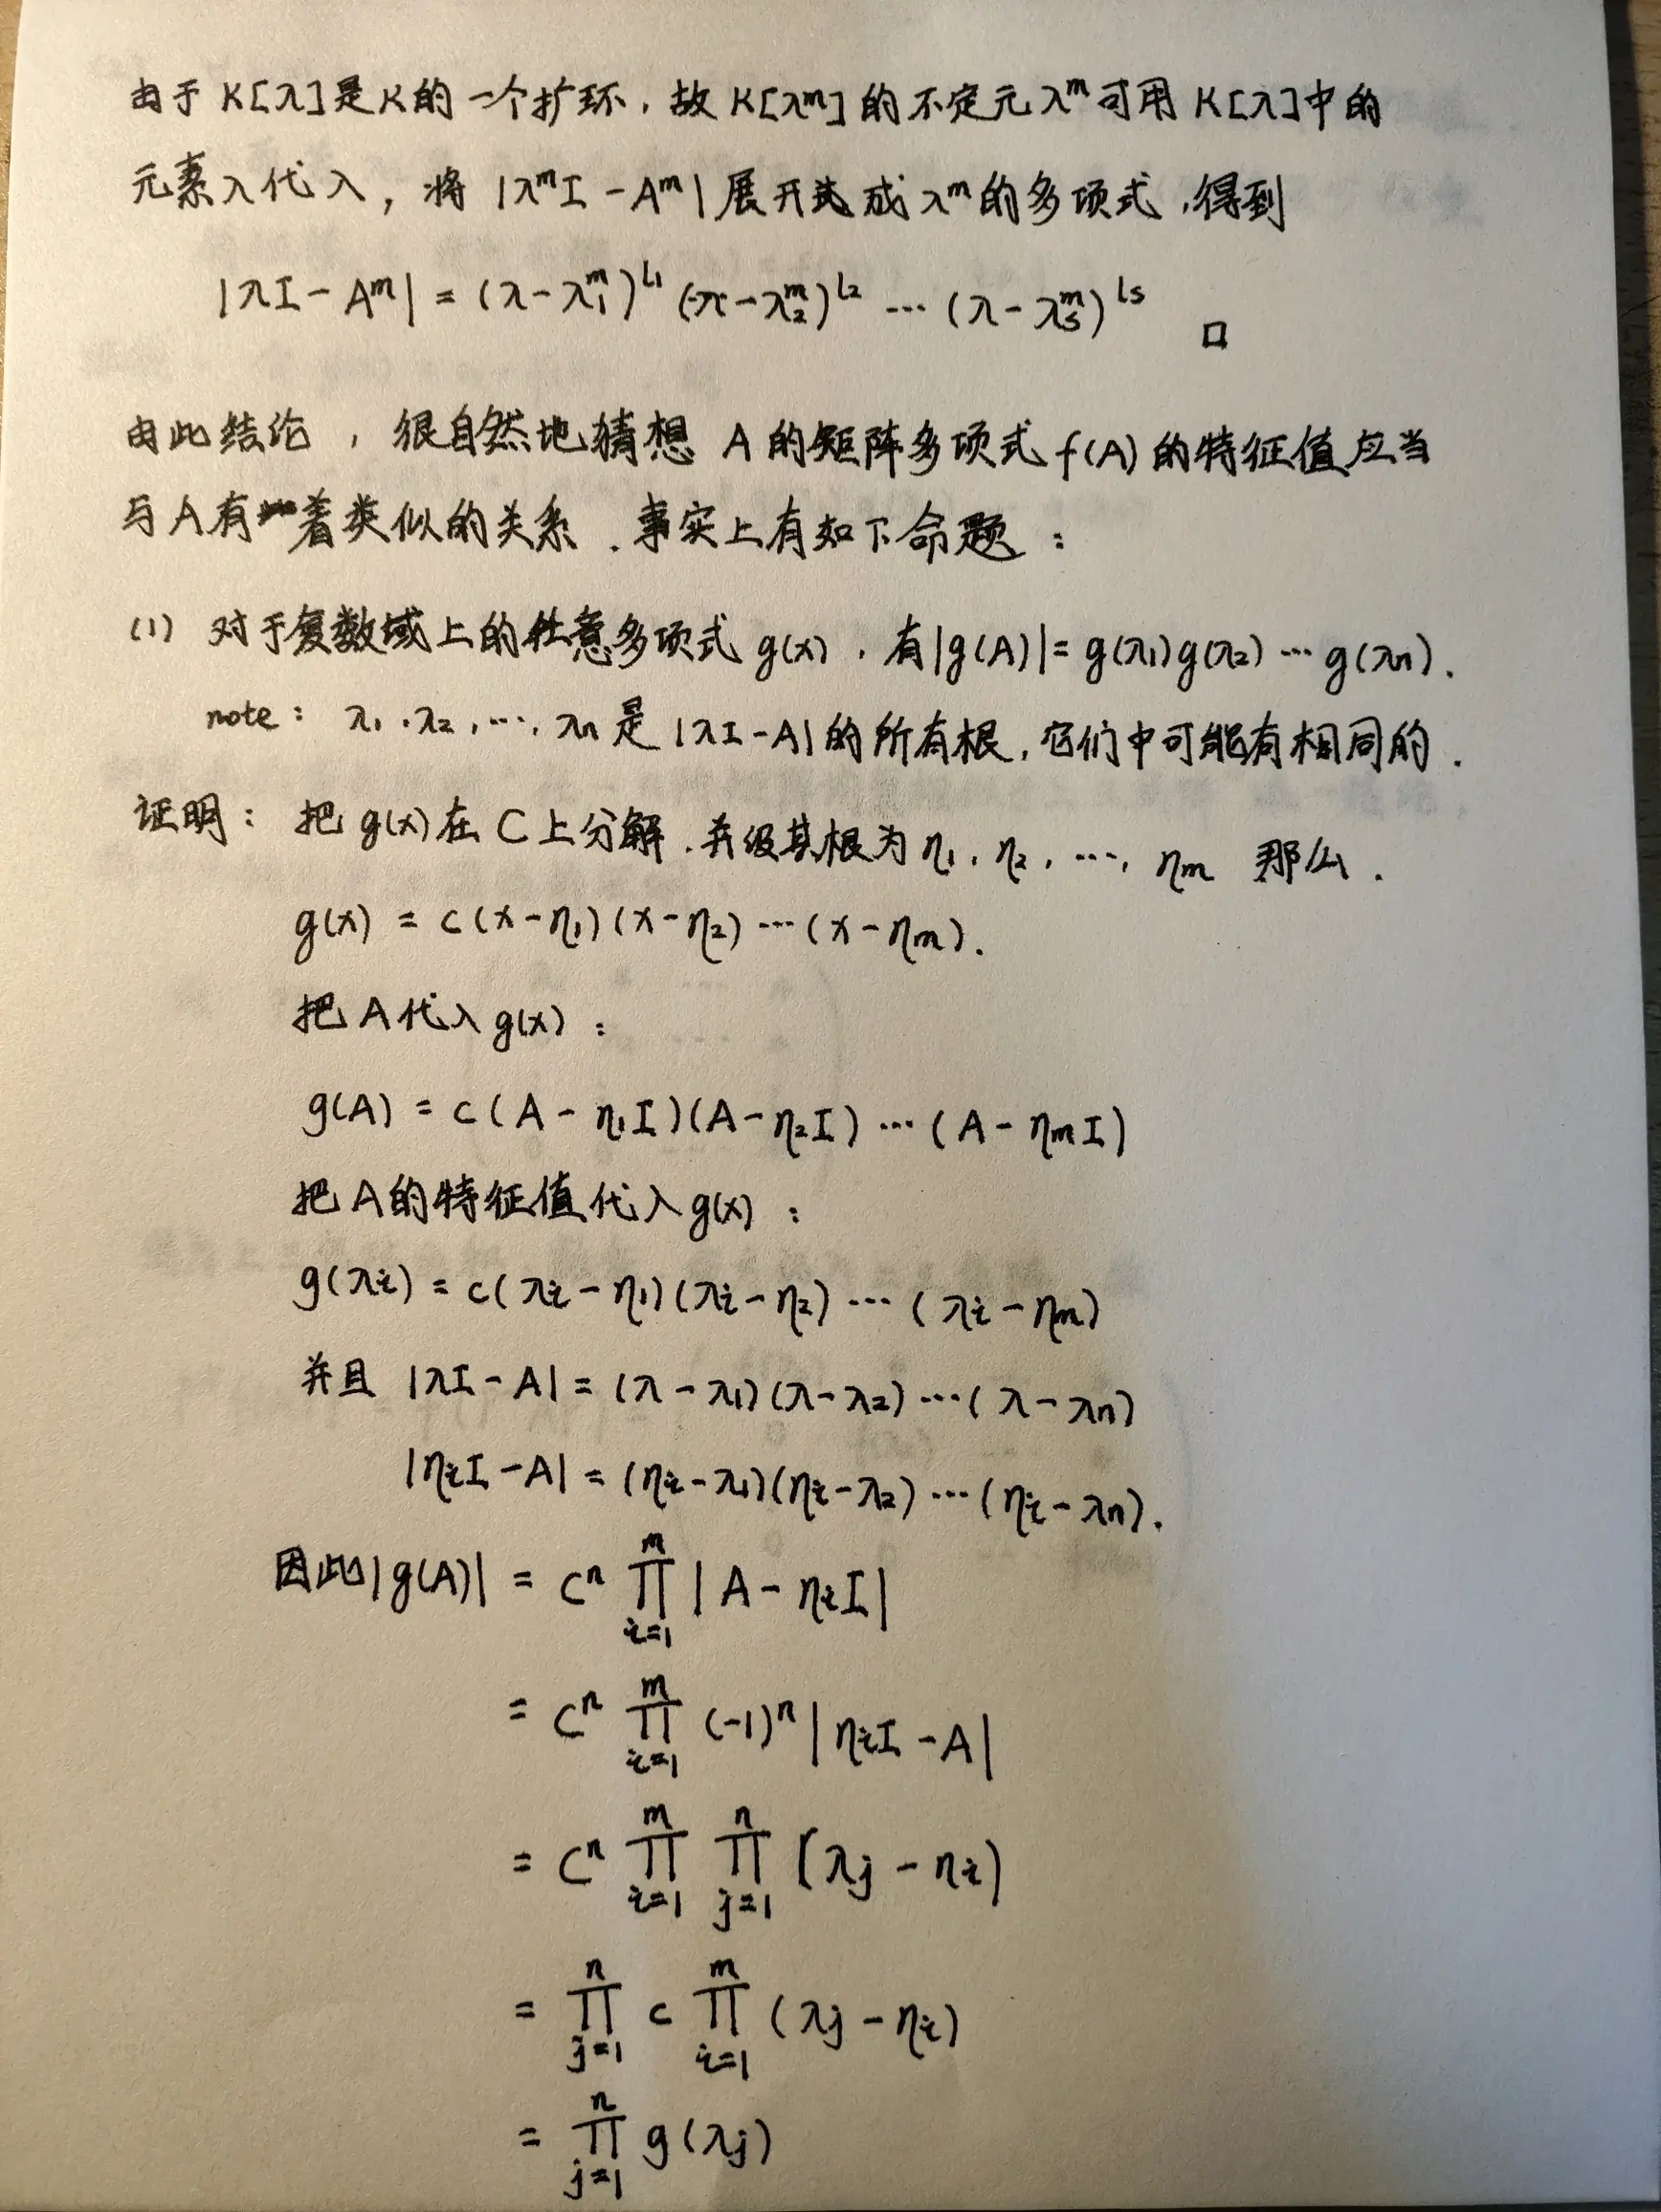 由于 K[λ]是K的一个扩环，故 K[λᵐ]的不定元 λᵐ可用 K[λ]中的
元素λ代入，将 |λᵐI - Aᵐ| 展开成 λᵐ的多项式，得到
|λI - Aᵐ| = (λ-λ₁ᵐ)^l₁ (λ-λ₂ᵐ)^l₂ ⋯ (λ-λₛᵐ)^lₛ □
由此结论，很自然地猜想 A 的矩阵多项式 f(A) 的特征值应当
与A有着类似的关系．事实上有如下命题：
(1) 对于复数域上的任意多项式 g(x)，有|g(A)|= g(λ₁)g(λ₂)⋯g(λₙ).
note： λ₁,λ₂,⋯,λₙ是|λI-A|的所有根，它们中可能有相同的．
证明：把 g(x)在 C上分解．并设其根为 η₁, η₂, ⋯, ηₘ 那么．
g(x) = c(x-η₁)(x-η₂)⋯(x-ηₘ).
把 A代入g(x)：
g(A) = c(A-η₁I)(A-η₂I)⋯(A-ηₘI)
把A的特征值代入g(x)：
g(λᵢ) = c(λᵢ-η₁)(λᵢ-η₂)⋯(λᵢ-ηₘ)
并且 |λI-A| = (λ-λ₁)(λ-λ₂)⋯(λ-λₙ)
|ηᵢI-A| = (ηᵢ-λ₁)(ηᵢ-λ₂)⋯(ηᵢ-λₙ).
因此|g(A)| = cⁿ ∏_{i=1}^{m} |A-ηᵢI|
= cⁿ ∏_{i=1}^{m} (-1)ⁿ |ηᵢI-A|
= cⁿ ∏_{i=1}^{m} ∏_{j=1}^{n} (λⱼ-ηᵢ)
= ∏_{j=1}^{n} c ∏_{i=1}^{m} (λⱼ-ηᵢ)
= ∏_{j=1}^{n} g(λⱼ)